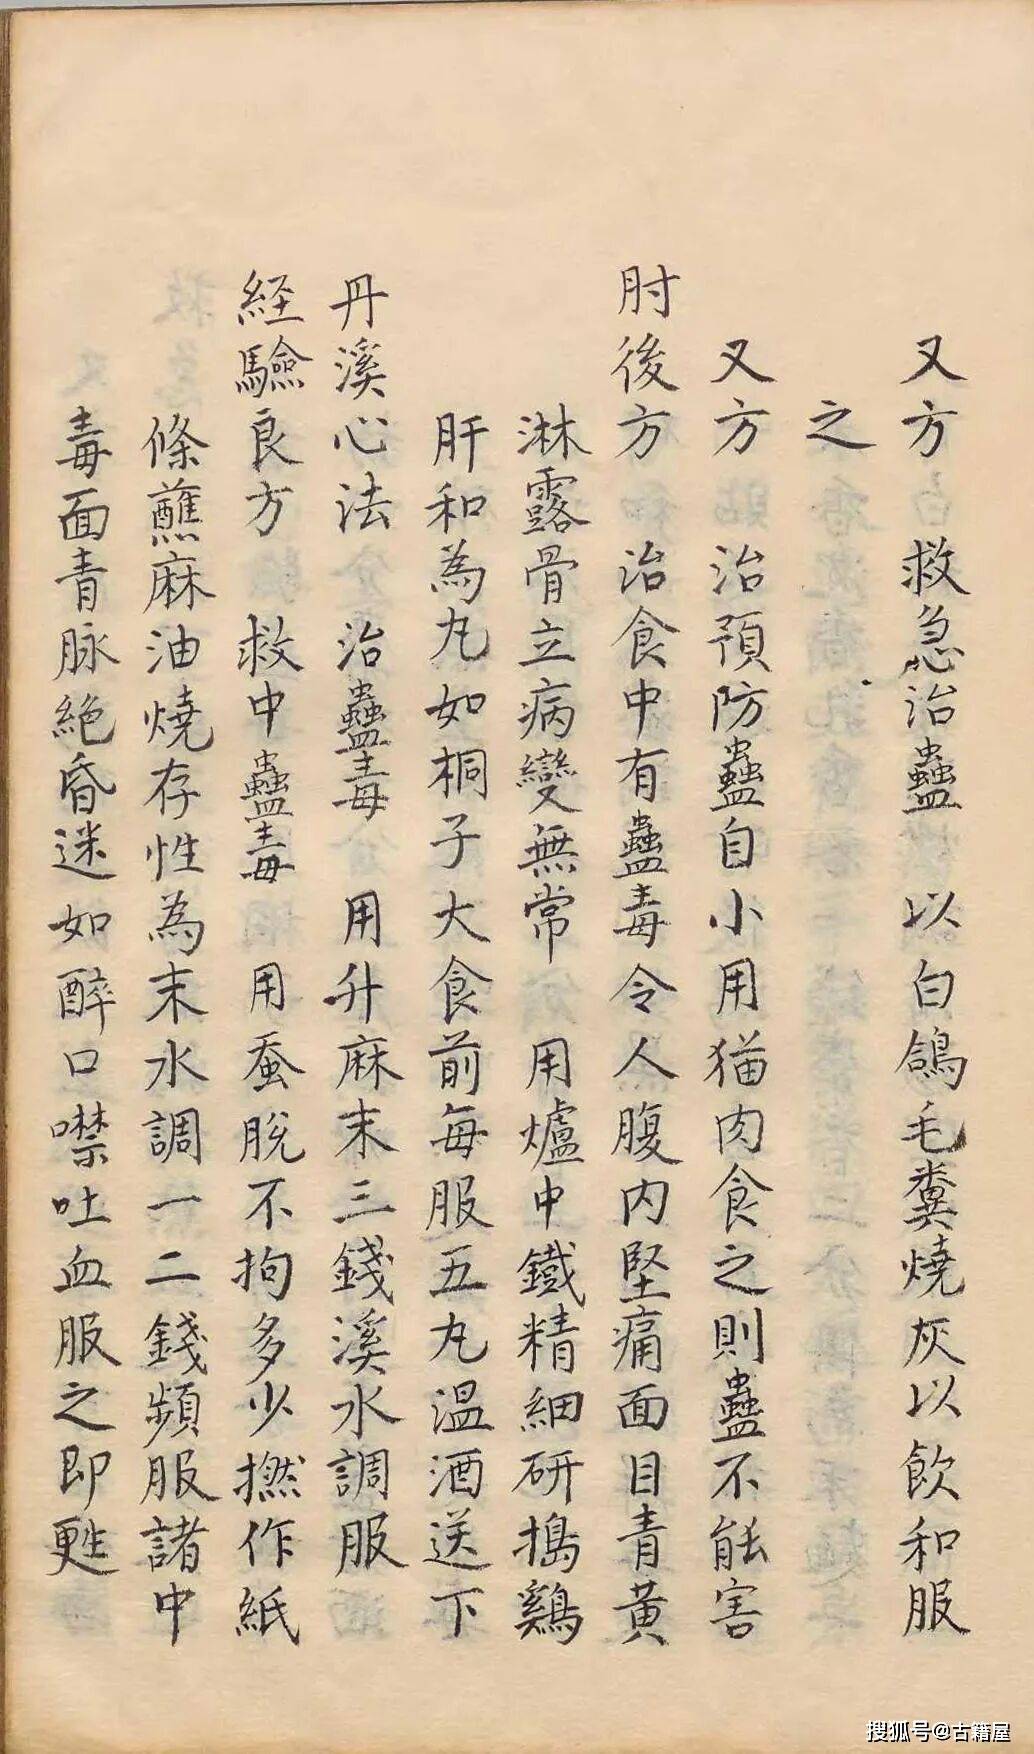 又方 救急治蠱 以白鴿毛糞燒灰以飲和服
之
又方 治預防蠱自小用猫肉食之則蠱不能害
肘後方 治食中有蠱毒令人腹内堅痛面目青黄
淋露骨立病變無常 用爐中鐵精細研搗鷄
肝和為丸如桐子大食前每服五丸温酒送下
丹溪心法 治蠱毒 用升麻末三錢溪水調服
経驗良方 救中蠱毒 用蚕脱不拘多少撚作紙
條蘸麻油燒存性為末水調一二錢頻服諸中
毒面青脉絶昏迷如醉口噤吐血服之即甦
搜狐号@古籍屋